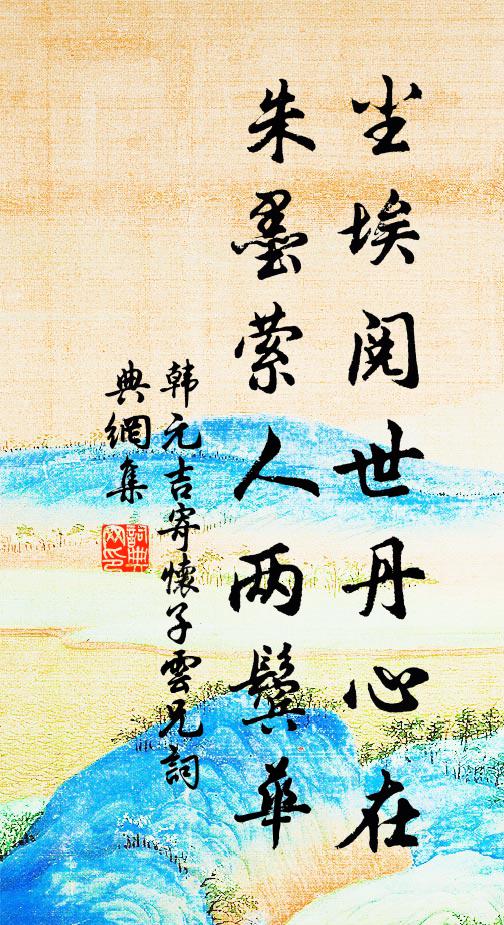 尘埃阅世丹心在
朱墨萦人两鬓华
韩元吉寄懷子雲兄詞
典網集
詞典